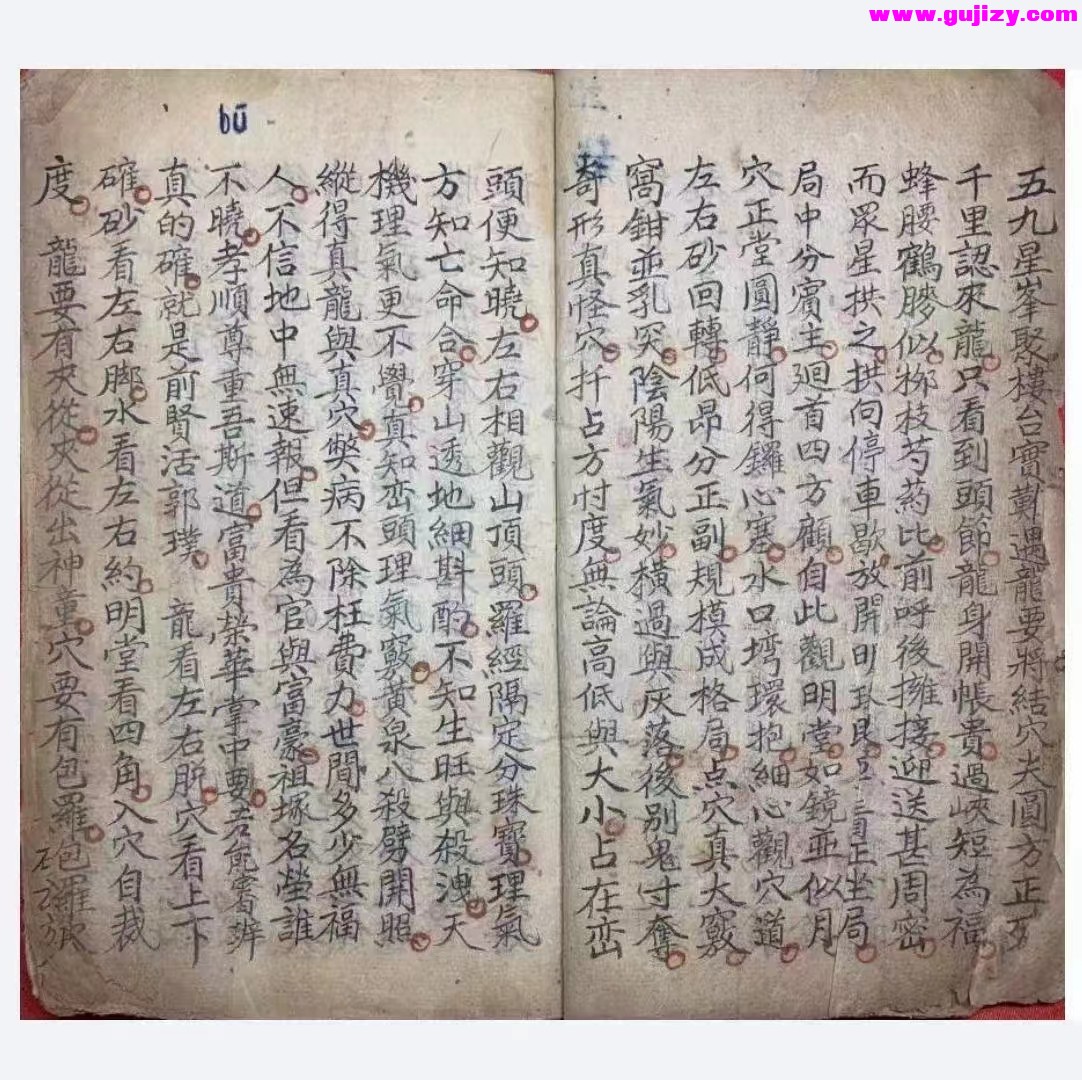 www.gujizy.com
五九星峯聚樓台實斬遇龍要將結穴夫圓方正
千里認來龍只看到頭節龍身開帳貴過峽短為福
蜂腰鶴膝似柳枝芍葯比前呼後擁接迎送甚周密
而眾星拱之拱向停車歇放開正坐局
局中分賓主廻首四方顧自此觀明堂如鏡並似月
穴正堂圓靜何得鑼心塞水口塆環抱細心觀穴道
左右砂回轉低昂分正副規模成格局点穴真大竅
窩鉗並乳突陰陽生氣妙橫過與灰落後別鬼寸奪
奇形真怪穴扦占方忖度無論高低與大小占在峦
bū
頭便知曉左右相觀山頂頭羅經隔定分珠寶理氣
方知亡命合穿山透地細斟酌不知生旺與殺洩天
機理氣更不覺真知峦頭理氣竅黃泉八殺劈開照
縱得真龍與真穴獘病不除枉費力世間多少無福
人不信地中無速報但看為官與富豪祖塚名塋誰
不曉孝順尊重吾斯道富貴榮華掌中要若能審辨
真的確就是前賢活郭璞 龍看左右肥穴看上下
確砂看左右脚水看左右約明堂看四角入穴自裁
度 龍要有夾從夾從出神童穴要有包羅包羅